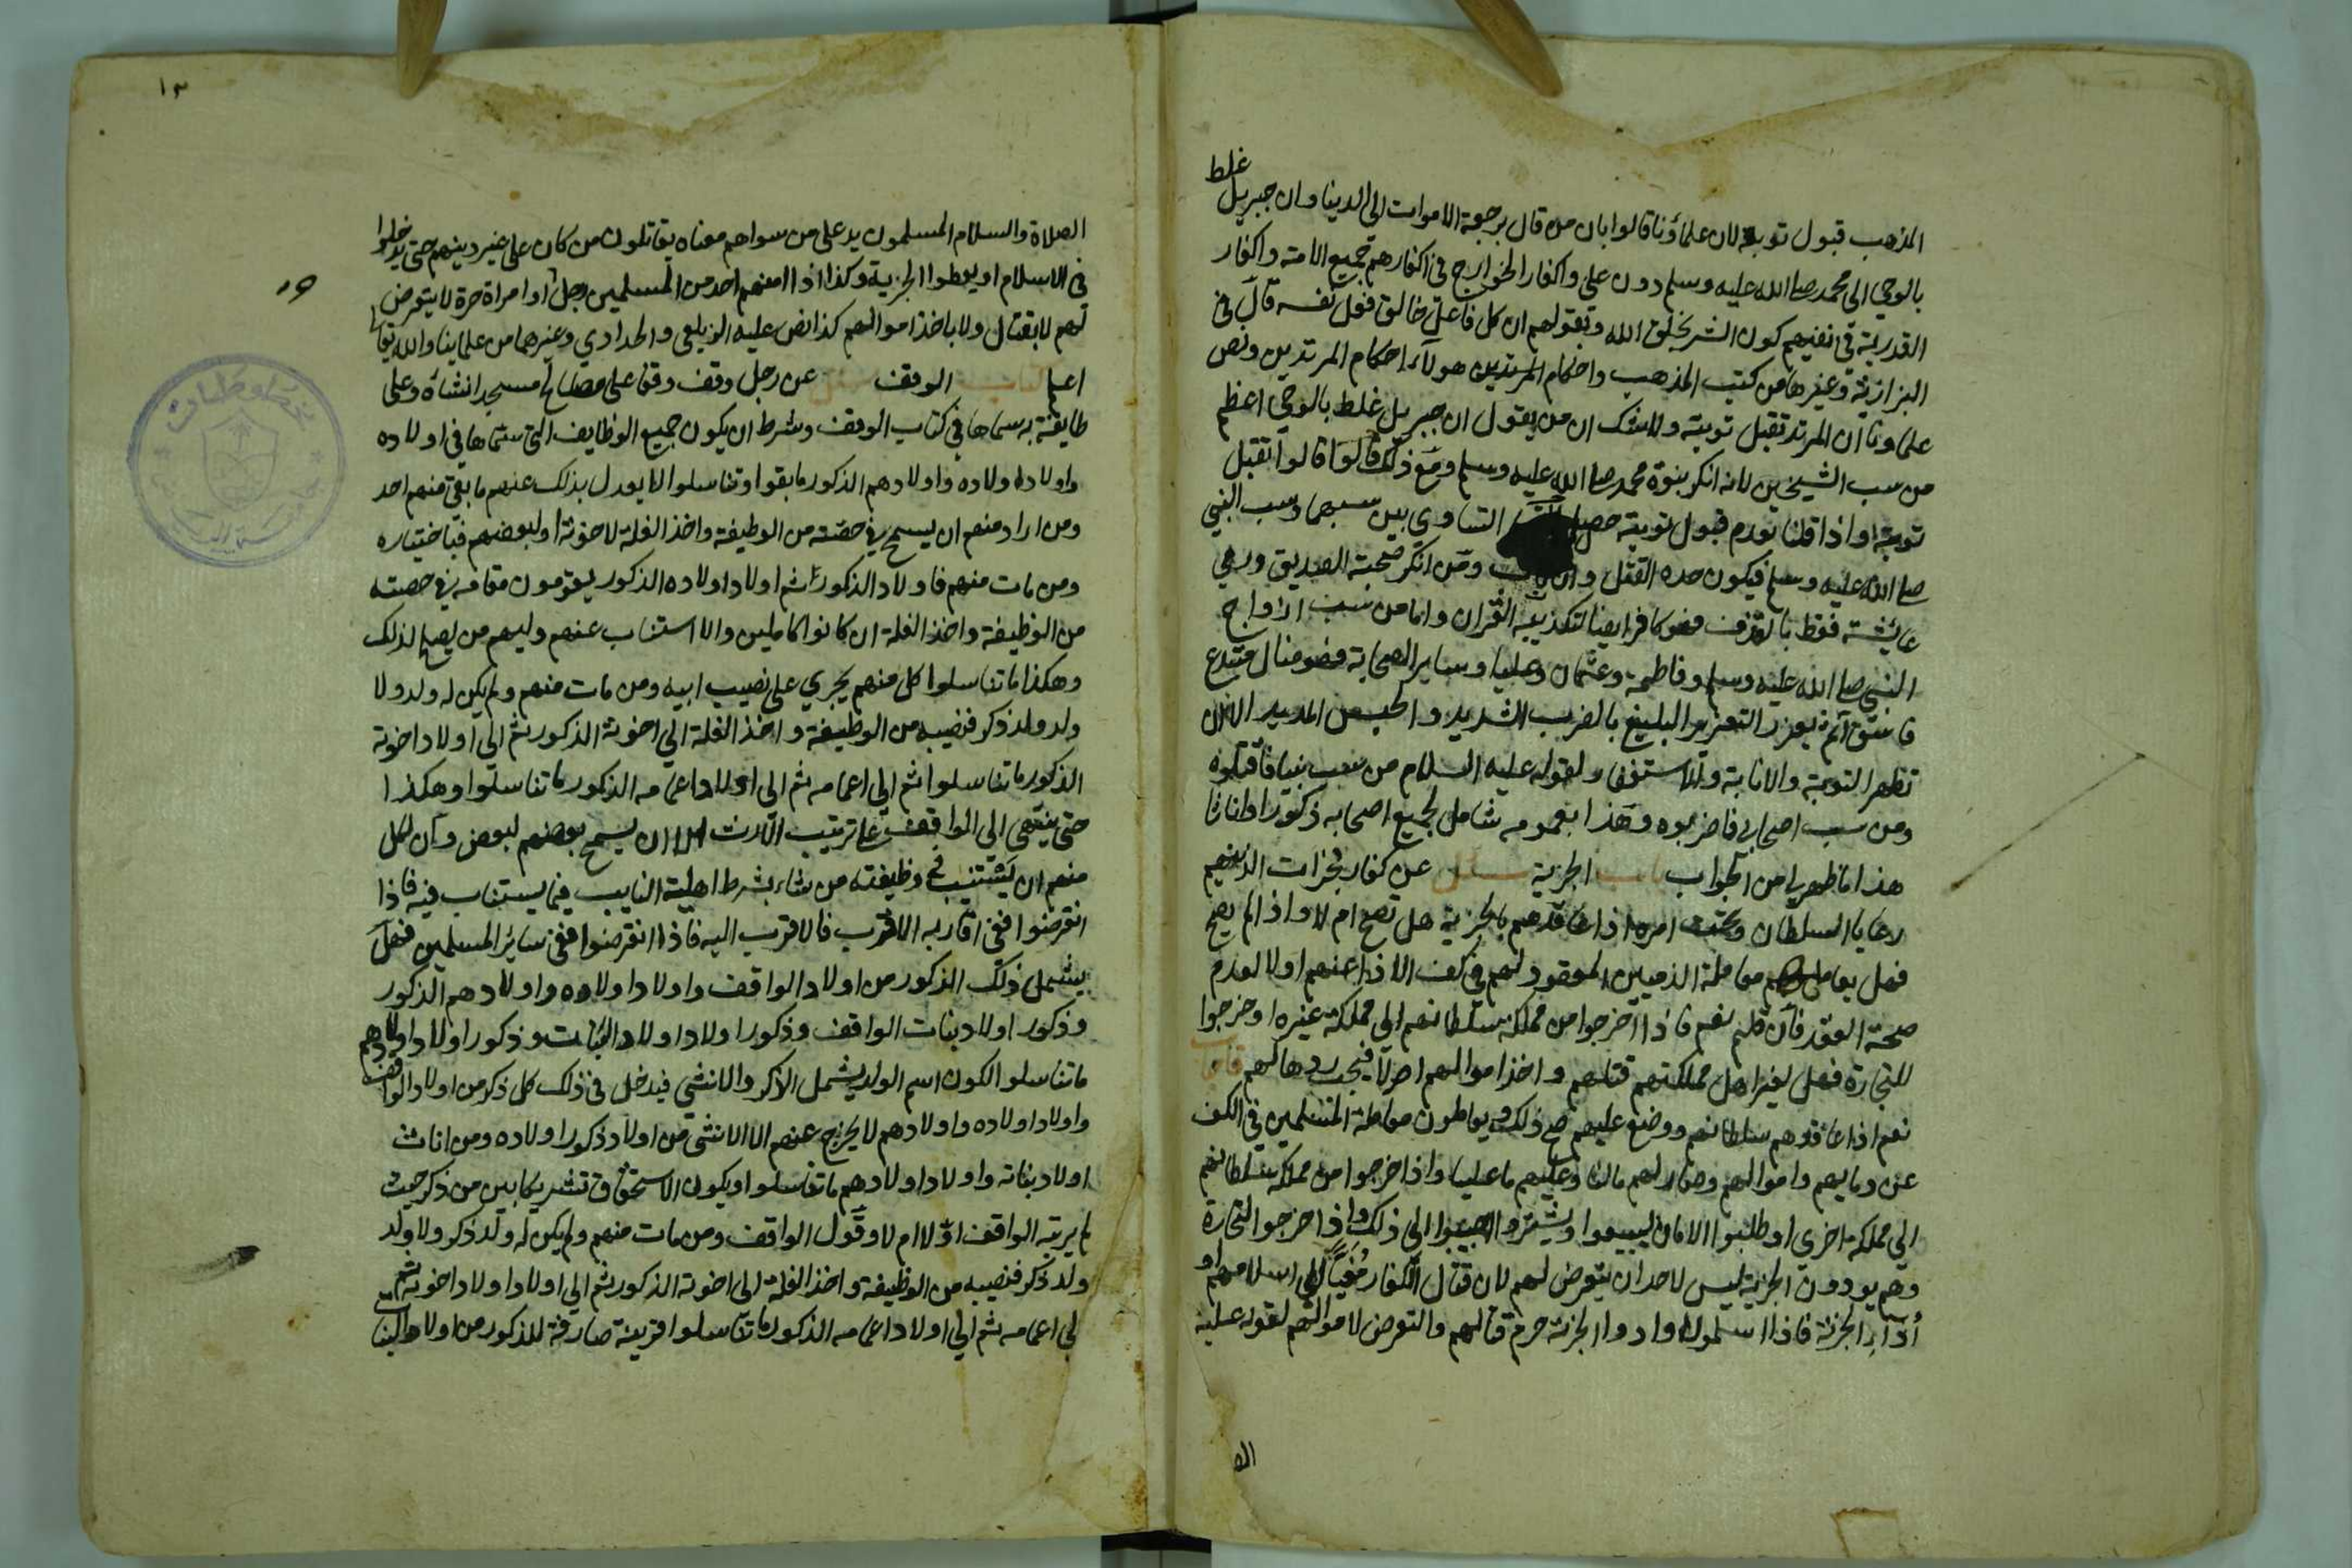 غلط
المذهب قبول توبته لان علماؤنا قالوا بان من قال برجعة الاموات الى الدنيا وان جبريل
بالوحي الى محمد صلى الله عليه وسلم دون علي واكفار الخوارج في اكفارهم جميع الامة واكفار
القدرية في نفيهم كون الشر بخلق الله وبقولهم ان كل فاعل خالق فعل نفسه قال في
البزازية وغيرها من كتب المذهب واحكام المرتدين هولاء احكام المرتدين ونص
علماونا ان المرتد تقبل توبته ولا شك ان من يقول ان جبريل غلط بالوحي اعظم
من سب الشيخين لانه انكر بنوة محمد صلى الله عليه وسلم ومع ذلك قالوا تقبل
توبته واذا قلنا بعدم قبول توبته حصل التساوي بين سبهما وسب النبي
صلى الله عليه وسلم فيكون حده القتل وان تاب ومن انكر صحبة الصديق ورمي
عايشة فقط بالقذف فهو كافر ايضا لتكذيبه القران واما من سب ازواج
النبي صلى الله عليه وسلم وفاطمة وعثمان وعليا وساير الصحابة فهو ضال مبتدع
فاسق آثم يعزر التعزير البليغ بالضرب الشديد والحبس المديد الى ان
تظهر التوبة والانابة والاستغفار لقوله عليه السلام من سب نبيا فاقتلوه
ومن سب اصحابي فاضربوه وهذا بعمومه شامل لجميع اصحابه ذكورا واناثا
هذا ما ظهر لي من الجواب باب الجزية سئل عن كفار الذينهم
رعايا السلطان وتحت امره اذا عاقدهم بالجزية هل تصح ام لا واذا لم يصح
فهل يعاملهم معاملة الذميين المعقود لهم في كف الاذا عنهم اولا لعدم
صحة العقد فان قلتم نعم فاذا اخرجوا من مملكة سلطانهم الى مملكة غيره او خرجوا
للتجارة فهل لغير اهل مملكتهم قتلهم واخذ اموالهم ام لا فيجب ردها لهم فاجاب
نعم اذا عاقدهم سلطانهم ووضع عليهم صح ذلك ويعاملون معاملة المسلمين في الكف
عن دمايهم واموالهم وصار لهم مالنا وعليهم ما علينا واذا خرجوا من مملكة سلطانهم
الى مملكة اخرى او طلبوا الامان ليبيعوا ويشتروا اجيبوا الى ذلك واذا خرجوا لتجارة
وهم يودون الجزية ليس لاحد ان يتعرض لهم لان قتال الكفار مغيا الى اسلامهم او
أداء الجزية فاذا اسلموا او ادوا الجزية حرم قتالهم والتعرض لاموالهم لقوله عليه
الص
١٣
الصلاة والسلام المسلمون يد على من سواهم معناه يقاتلون من كان على غير دينهم حتى يدخلوا
في الاسلام او يعطوا الجزية وكذا اذا امنهم احد من المسلمين رجل او امراة حرة لا يتعرض
لهم لا بقتال ولا باخذ اموالهم كذا نص عليه الزيلعي والحدادي وغيرهما من علماينا والله تعالى
اعلم كتاب الوقف سئل عن رجل وقف وقفا على مصالح مسجد انشاه وعلى
طايفة سماها في كتاب الوقف وشرط ان يكون جميع الوظايف التي سماها في اولاده
واولاد اولاده واولادهم الذكور ما بقوا وتناسلوا لا يعدل بذلك عنهم ما بقي منهم احد
ومن اراد منهم ان يسمح في حصته من الوظيفة واخذ الغلة لاخوته او لبعضهم فباختياره
ومن مات منهم فاولاد الذكور ثم اولاد اولاده الذكور يقومون مقامه في حصته
من الوظيفة واخذ الغلة ان كانوا كاملين والا استناب عنهم وليهم من يصلح لذلك
وهكذا ما تناسلوا كل منهم يجري على نصيب ابيه ومن مات منهم ولم يكن له ولد ولا
ولد ولد ذكر فنصيبه من الوظيفة واخذ الغلة الى اخوته الذكور ثم الى اولاد اخوته
الذكور ما تناسلوا ثم الى اعمامه ثم الى اولاد اعمامه الذكور ما تناسلوا وهكذا
حتى ينتهي الى الواقف على ترتيب الارث الا ان يسمح بعضهم لبعض وان لكل
منهم ان يستنيب في وظيفته من شاء بشرط اهلية النايب فيما يستناب فيه فاذا
انقرضوا ففي اقاربه الاقرب فالاقرب اليه فاذا انقرضوا ففي سائر المسلمين فهل
يشمل ذلك الذكور من اولاد الواقف واولاد اولاده واولادهم الذكور
وذكور اولاد بنات الواقف وذكور اولاد اولاد البنات وذكور اولاد اولادهم
ما تناسلوا لكون اسم الولد يشمل الذكر والانثى فيدخل في ذلك كل ذكر من اولاد الواقف
واولاد اولاده واولادهم لا يخرج عنهم الا الانثى من اولاد ذكور اولاده ومن اناث
اولاد بناته واولاد اولادهم ما تناسلوا ويكون الاستحقاق تشريكا بين من ذكر حيث
لم يرتبه الواقف اولا ام لا وقول الواقف ومن مات منهم ولم يكن له ولد ذكر ولا ولد
ولد ذكر فنصيبه من الوظيفة واخذ الغلة الى اخوته الذكور ثم الى اولاد اولاد اخوته ثم
الى اعمامه ثم الى اولاد اعمامه الذكور ما تناسلوا قرينة صارفة للذكور من اولاد البنات